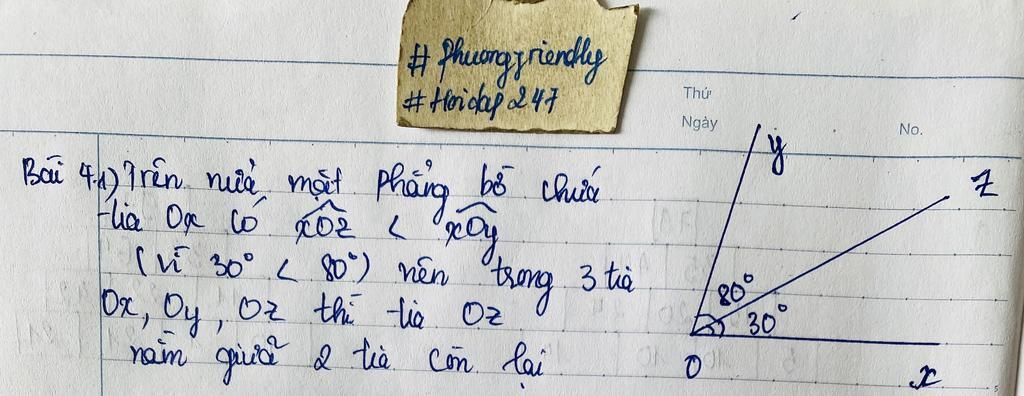 # phuongfriendly
# Hoidap 247
Thứ
Ngày
No.
Bài 4.1) Trên nửa mặt phẳng bờ chứa
tia Ox có xOz < xOy
(vì 30° < 80°) nên trong 3 tia
Ox, Oy, Oz thì tia Oz
nằm giữa 2 tia còn lại
y
z
80°
30°
O
x